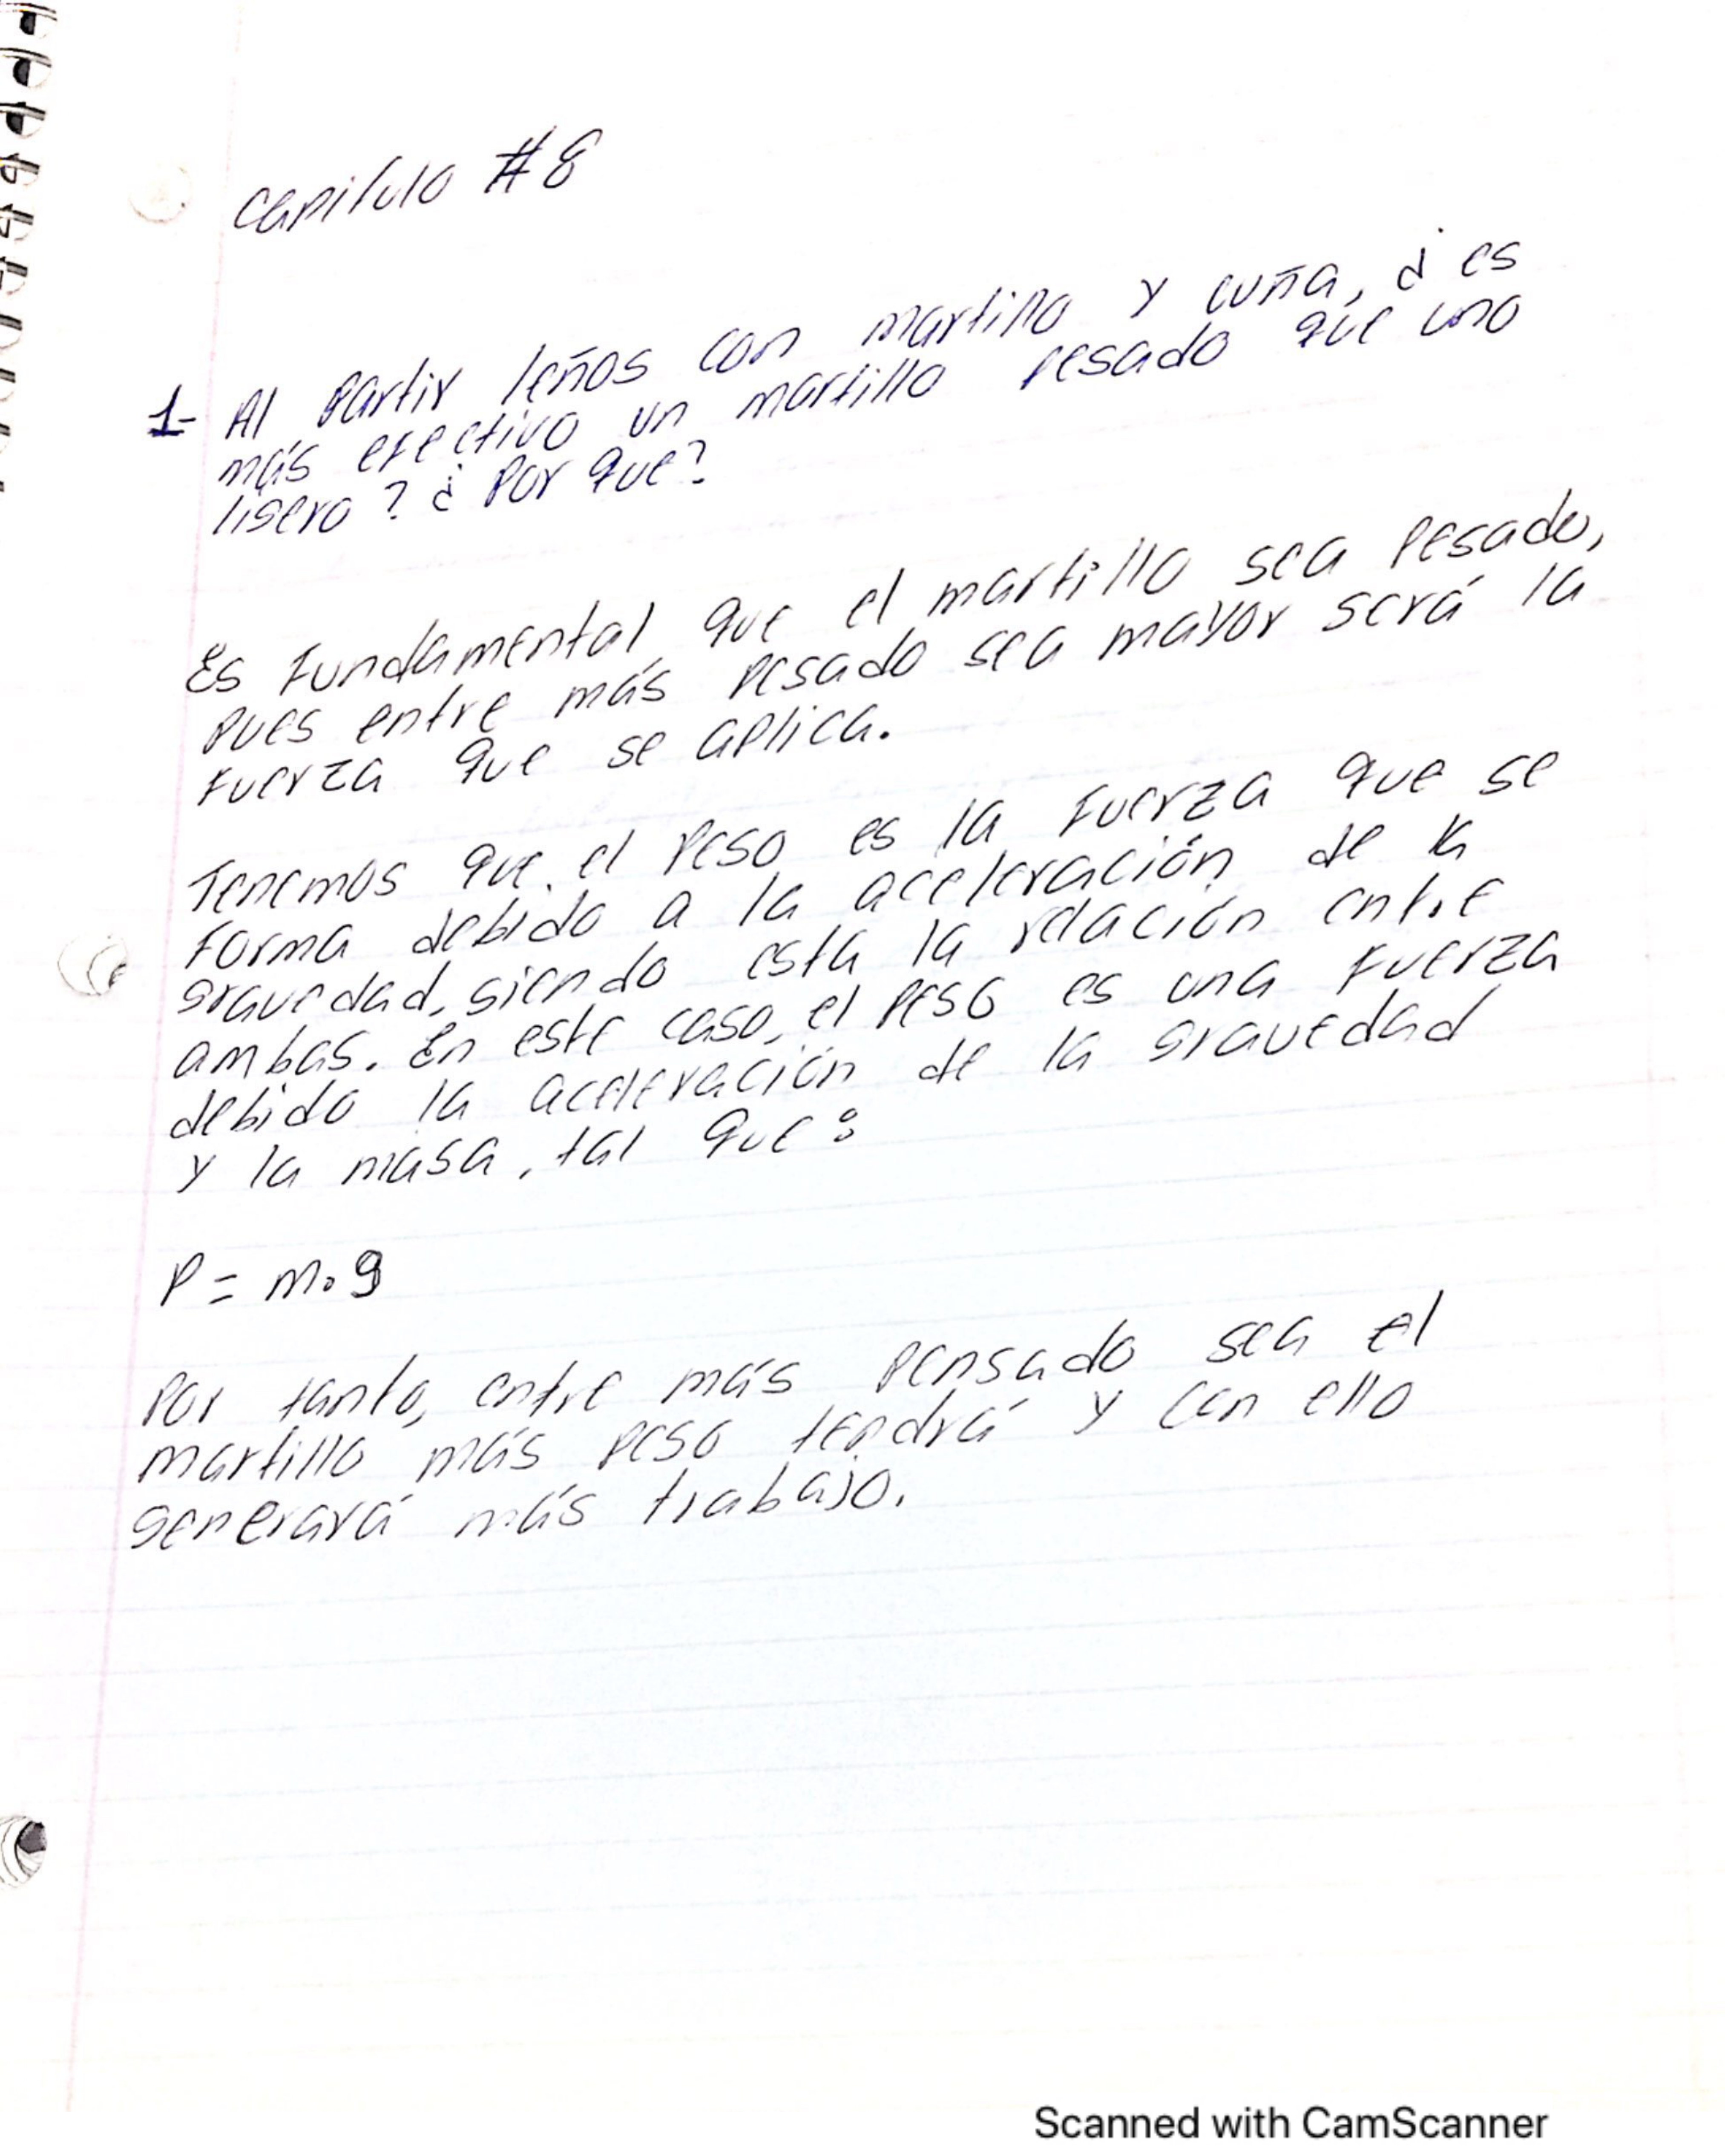 Capitulo #8
1- Al partir leños con martillo y cuña, ¿es
más efectivo un martillo pesado que uno
ligero? ¿Por que?
Es fundamental que el martillo sea pesado,
pues entre más pesado sea mayor será la
fuerza que se aplica.
Tenemos que el peso es la fuerza que se
forma debido a la aceleración de la
gravedad, siendo esta la relación entre
ambas. En este caso, el peso es una fuerza
debido la aceleración de la gravedad
y la masa, tal que:
P = m.g
Por tanto, entre más pensado sea el
martillo más peso tendrá y con ello
generará más trabajo.
Scanned with CamScanner